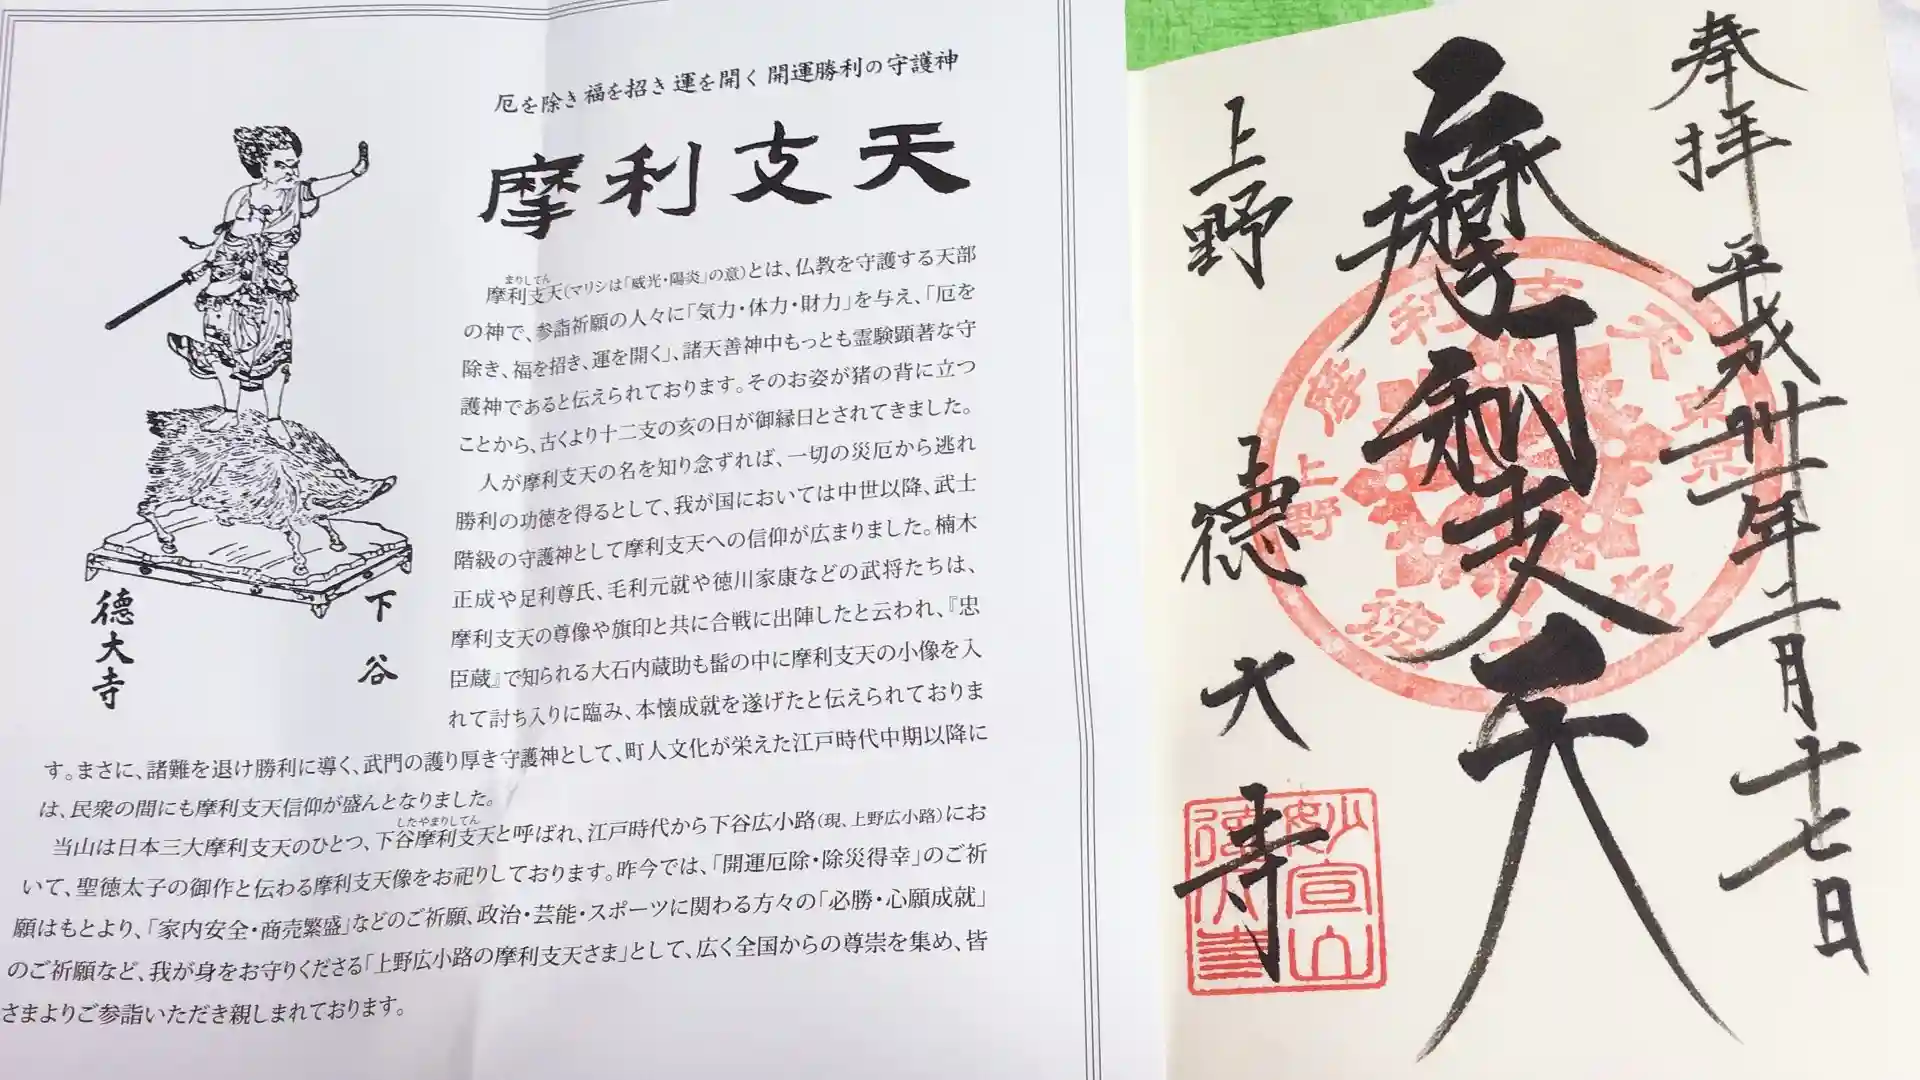 厄を除き 福を招き 運を開く 開運勝利の守護神
摩利支天
まりしてん
摩利支天(マリシは「威光・陽炎」の意)とは、仏教を守護する天部
の神で、参詣祈願の人々に「気力・体力・財力」を与え、「厄を
除き、福を招き、運を開く」、諸天善神中もっとも霊験顕著な守
護神であると伝えられております。そのお姿が猪の背に立つ
ことから、古くより十二支の亥の日が御縁日とされてきました。
人が摩利支天の名を知り念ずれば、一切の災厄から逃れ
勝利の功徳を得るとして、我が国においては中世以降、武士
階級の守護神として摩利支天への信仰が広まりました。楠木
正成や足利尊氏、毛利元就や徳川家康などの武将たちは、
摩利支天の尊像や旗印と共に合戦に出陣したと云われ、『忠
臣蔵』で知られる大石内蔵助も髷の中に摩利支天の小像を入
れて討ち入りに臨み、本懐成就を遂げたと伝えられておりま
す。まさに、諸難を退け勝利に導く、武門の護り厚き守護神として、町人文化が栄えた江戸時代中期以降に
は、民衆の間にも摩利支天信仰が盛んとなりました。
したやまりしてん
当山は日本三大摩利支天のひとつ、下谷摩利支天と呼ばれ、江戸時代から下谷広小路(現、上野広小路)にお
いて、聖徳太子の御作と伝わる摩利支天像をお祀りしております。昨今では、「開運厄除・除災得幸」のご祈
願はもとより、「家内安全・商売繁盛」などのご祈願、政治・芸能・スポーツに関わる方々の「必勝・心願成就」
のご祈願など、我が身をお守りくださる「上野広小路の摩利支天さま」として、広く全国からの尊崇を集め、皆
さまよりご参詣いただき親しまれております。
下谷
徳大寺
奉拝 平成卅一年二月十七日
摩利支天
上野 徳大寺
東京
摩利支天
上野
徳大寺
妙宣山
徳大寺